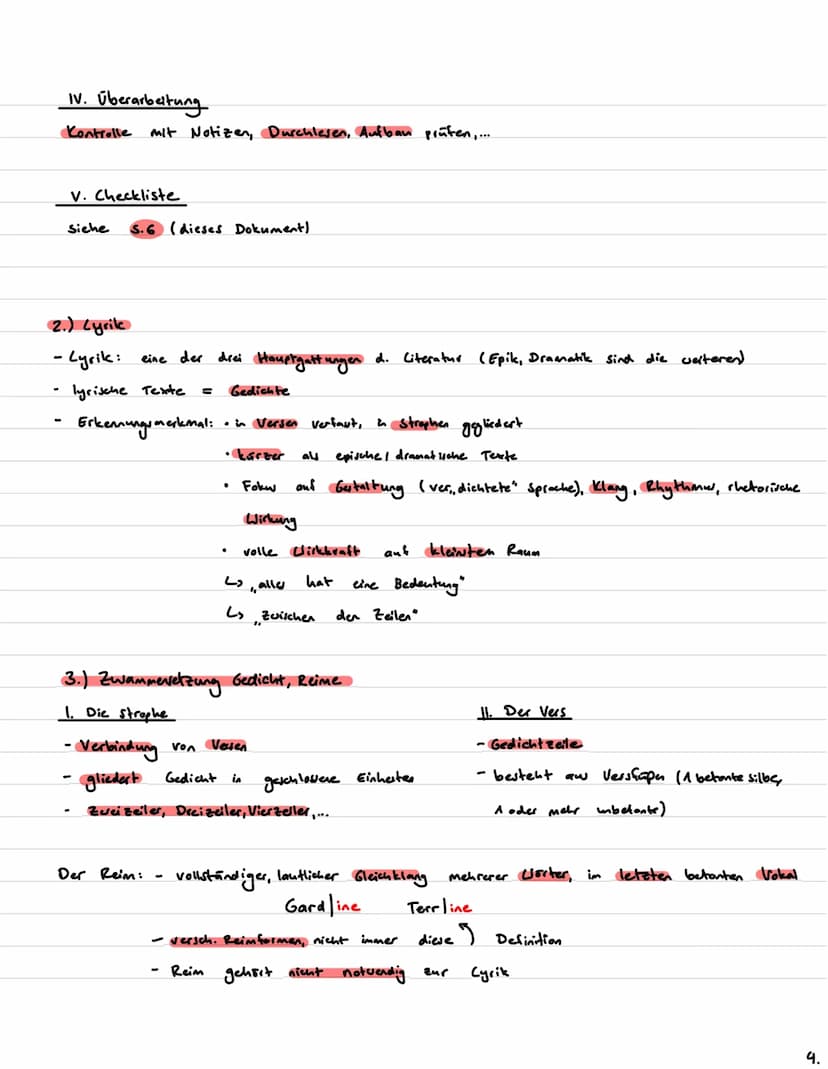 IV. Überarbeitung
Kontrolle mit Notizen, Durchlesen, Aufbau prüfen,...
V. Checkliste
siehe S.6 (dieses Dokument)
2.) Lyrik
- Lyrik: eine der drei Hauptgattungen d. Literatur (Epik, Dramatik sind die weiteren)
- lyrische Texte = Gedichte
- Erkennungsmerkmal: • in Versen verfasst, in Strophen ggliedert
• kürzer als epische/dramatische Texte
• Fokus auf Gestaltung (ver„dichtete" Sprache), Klang, Rhythmus, rhetorische
Wirkung
• volle Wirkkraft auf kleinsten Raum
↳ „alles hat eine Bedeutung"
↳ „Zwischen den Zeilen"
3.) Zusammensetzung Gedicht, Reime
I. Die Strophe
- Verbindung von Versen
- gliedert Gedicht in geschlossene Einheiten
- Zweizeiler, Dreizeiler, Vierzeiler,...
II. Der Vers
- Gedichtzeile
- besteht aus Versfüßen (1 betonte Silbe,
1 oder mehr unbetonte)
Der Reim: - vollständiger, lautlicher Gleichklang mehrerer Wörter, im letzten betonten Vokal
Gard|ine Terr|ine
- versch. Reimformen, nicht immer diese Definition
- Reim gehört nicht notwendig zur Lyrik
4.